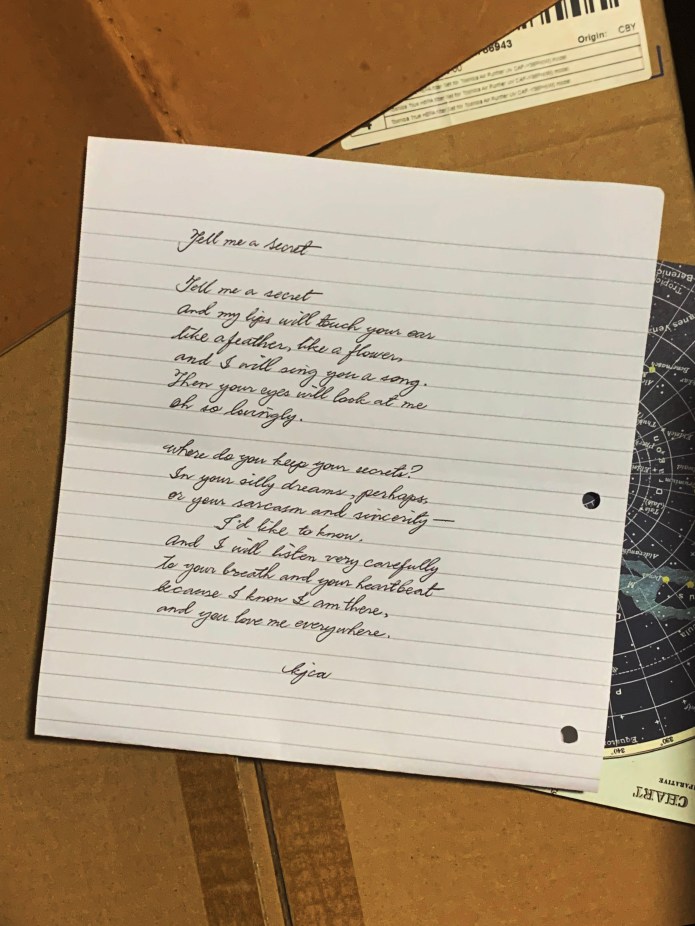 Tell me a secret
Tell me a secret
and my lips will touch your ear
like a feather, like a flower,
and I will sing you a song.
Then your eyes will look at me
oh so lovingly.
where do you keep your secrets?
In your silly dreams, perhaps,
or your sarcasm and sincerity—
I'd like to know.
and I will listen very carefully
to your breath and your heartbeat
because I know I am there,
and you love me everywhere.
kjca
66943
Origin: CBY
Tropic
Berenic
Equator
330°
340°
PARATIVE
CHART